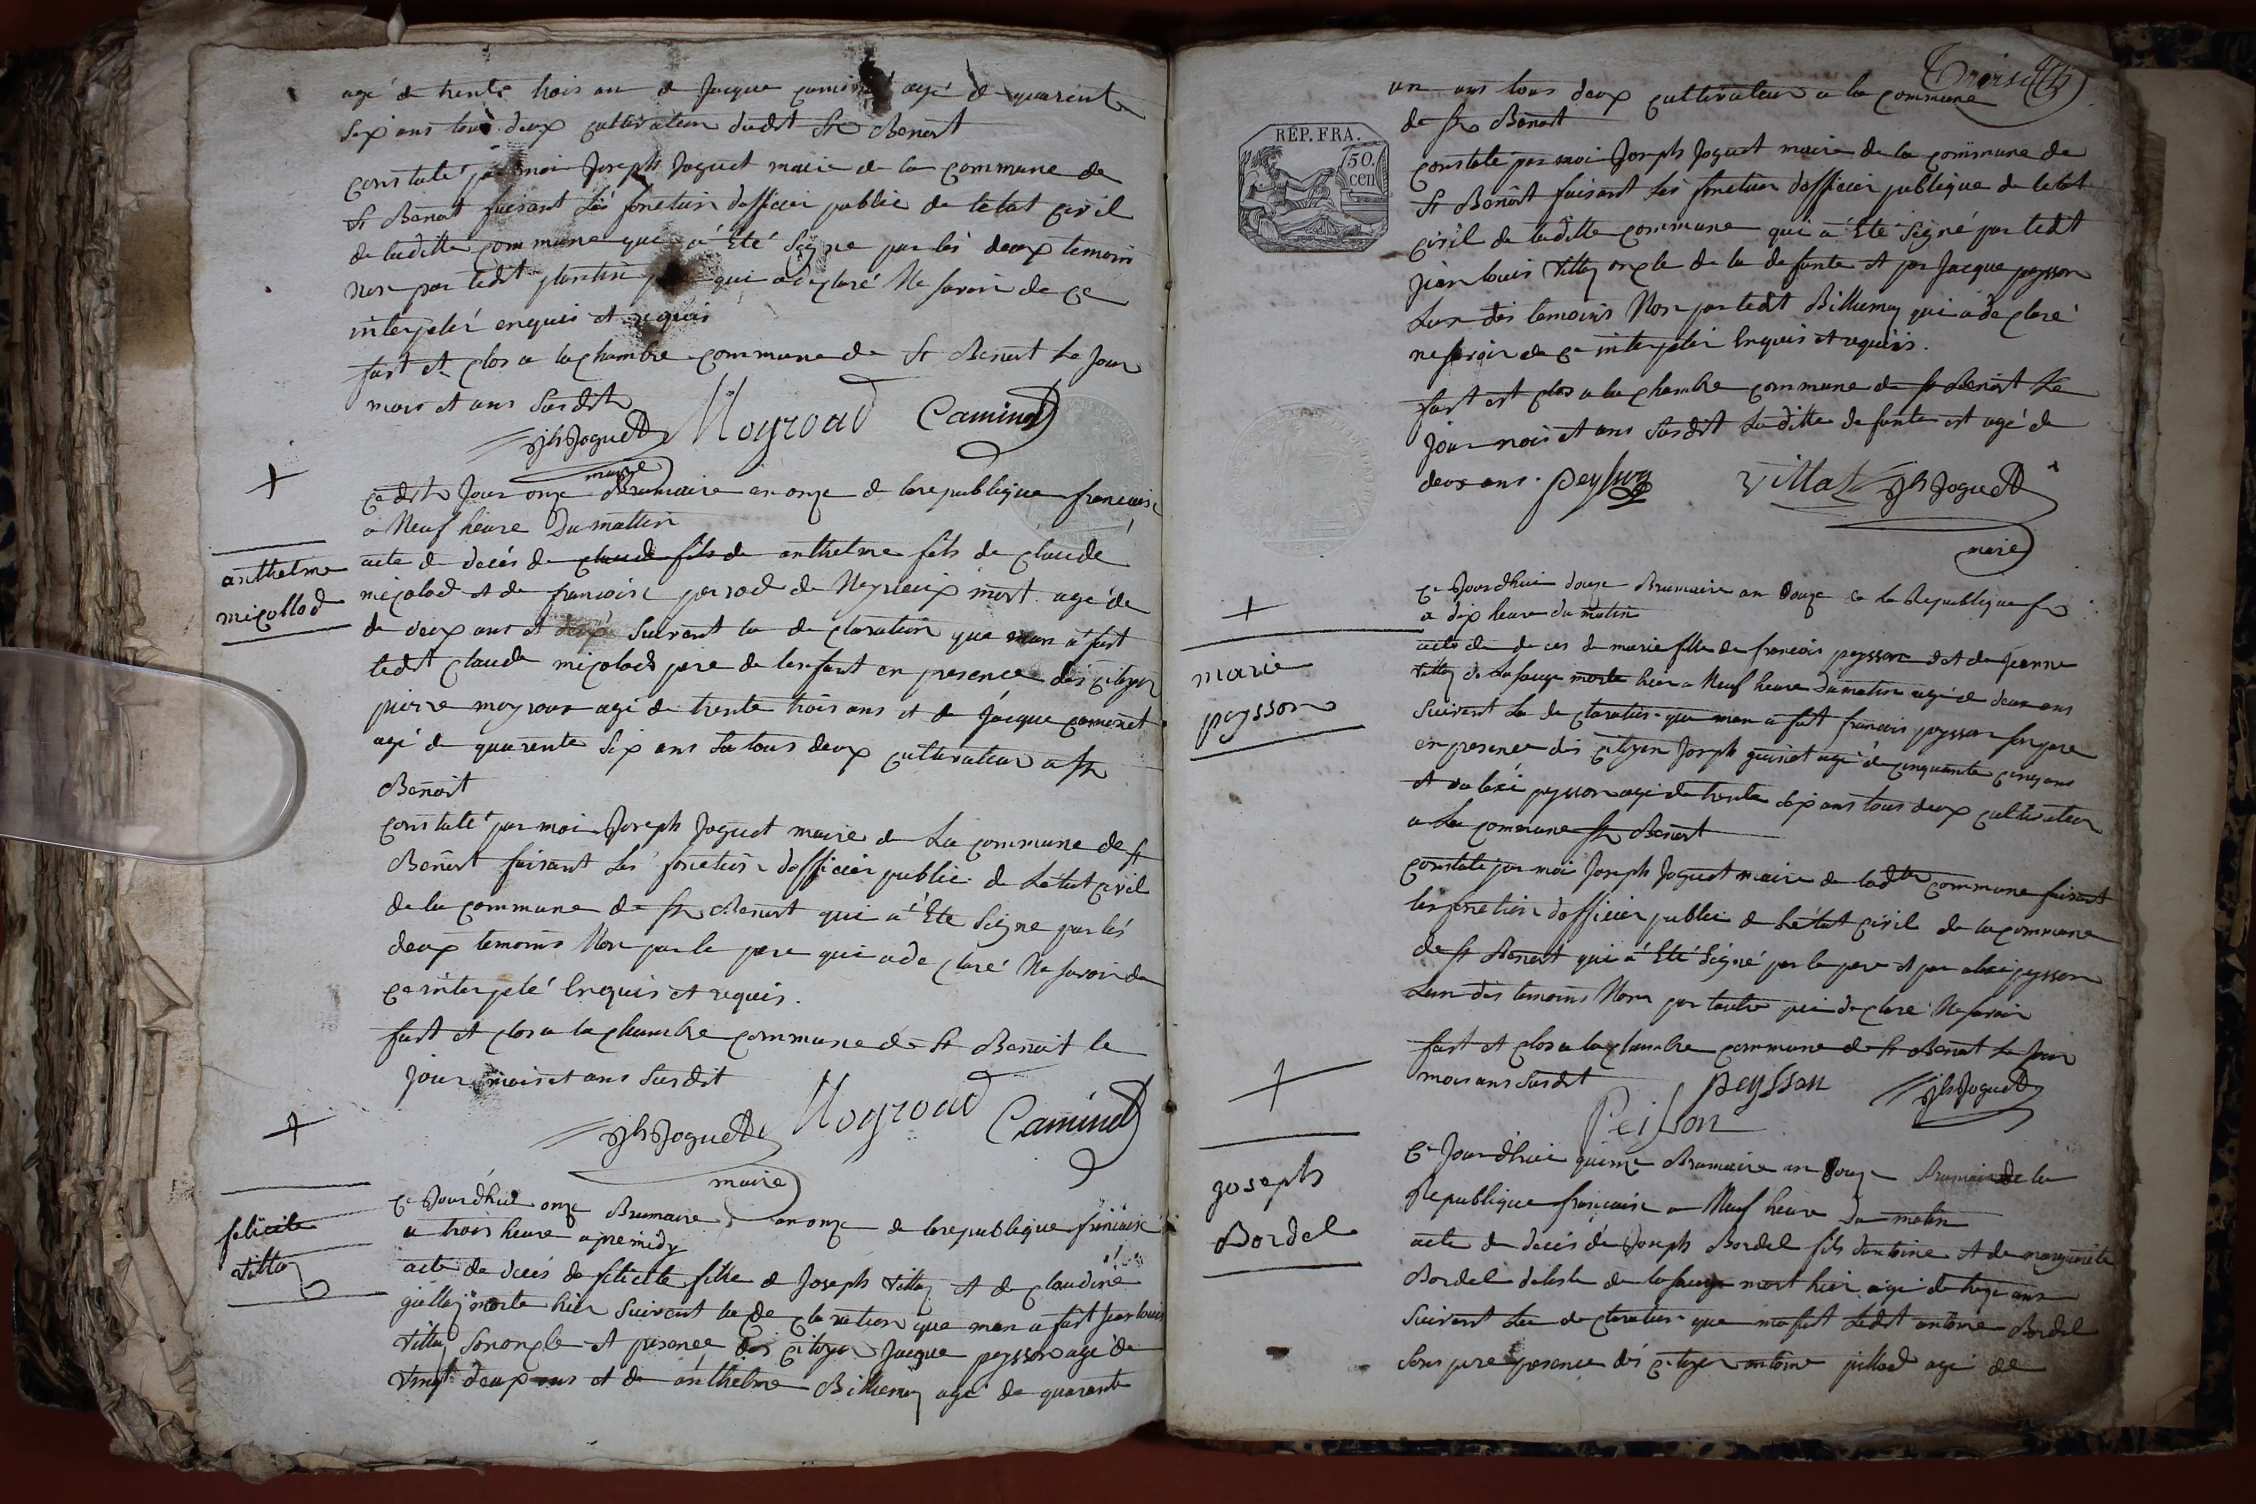 agé de trente trois an et Jacque caminet agé de quarente
six ans tous deux cultivateur dudit St Benoit
constaté par moi Joseph Joguet maire de la commune de
St Benoit faisant les fonction dofficier public de letat civil
de laditte commune qui a été signe par les deux temoin
non par ledit qui a declaré Ne savoir de ce
interpelé enquis et requis
fait et clos a la chambre commune de St Benoit Le Jour
mois et ans susdit
Jh Joguet Moyroud Caminet
maire
ce dit Jour onze Brumaire an onze de la republique francaise
a Neuf heure du mattin
anthelme
micollod
acte de decés de claude fils de anthelme fils de claude
micolod et de francoise perrod de Neyrieux mort agé de
de deux ans et suivant la declaration que man a fait
ledit claude micolod pere de lenfant en presence des citoyen
pierre moyroux agé de trente trois ans et de Jacque caminet
agé de quarente six ans tous deux cultivateur a St
Benoit
constaté par moi Joseph Joguet maire de La commune de St
Benoit faisant les fonction dofficier public de Letat civil
de la commune de St Benoit qui a été signe par les
deux temoins Non par le pere qui a declaré Ne savoir de
ce interpelé Enquis et requis.
fait et clos a la chambre commune de St Benoit le
Jour mois et ans susdit
Jh Joguet Moyroud Caminet
maire
felicite
Villa
ce Jourdhui onze Brumaire an onze de la republique francaise
a trois heure apremidy
acte de deces de felicite fille de Joseph Villa et de claudine
morte hier suivant la declaration que man a fait Jean louis
Villa son oncle et presence des citoyen Jacque peysson agé de
vingt deux ans et de anthelme Billiemaz agé de quarante
Troisd
un ans tous deux cultivateur a la commune
de St Benoit
REP. FRA.
50.
cen
constaté par moi Joseph Joguet maire de la commune de
St Benoit faisant les fonction dofficier publique de letat
civil de laditte commune qui a été signé par ledit
Jean louis Villa oncle de la defunte et par Jacque peysson
Lun des temoins Non par ledit Billiemaz qui a declaré
ne savoir de ce interpeler Enquis et requis.
fait et clos a la chambre commune de St Benoit Le
Jour mois et ans susdit Laditte defunte est agé de
deux ans. peysson Villa Jh Joguet
maire
ce Jourdhui douze Brumaire an douze de la Republique fr
a dix heure du matin
marie
peysson
acte de deces de marie fille de francois peysson et de Jeanne
Villa de La sauge morte hier a Neuf heure du matin agé de deux ans
suivant La declaration que man a fait francois peysson son pere
en presence des citoyen Joseph guinet agé de cinquante cinq ans
et alexi peysson agé de trente six ans tous deux cultivateur
a La commune St Benoit
constaté par moi Joseph Joguet maire de ladte commune faisant
les fonction dofficier public de Létat civil de la commune
de St Benoit qui a Eté signé par le pere et par alexi peysson
Lun des temoins Non par lautre qui declare Ne savoir
fait et clos a la chambre commune de St Benoit Le Jour
mois ans susdit peysson Jh Joguet
Peisson
Joseph
Bordel
ce Jourdhui quinze Brumaire an Douze Brumaire de la
Republique francaise a Neuf heure du matin
acte de decés de Joseph Bordel fils dantoine et de marguerite
Bordel de la sauge mort hier agé de treze ans
suivant La declaration que ma fait Ledit antoine Bordel
sons pere presence dés citoyen antoine julliod agé de